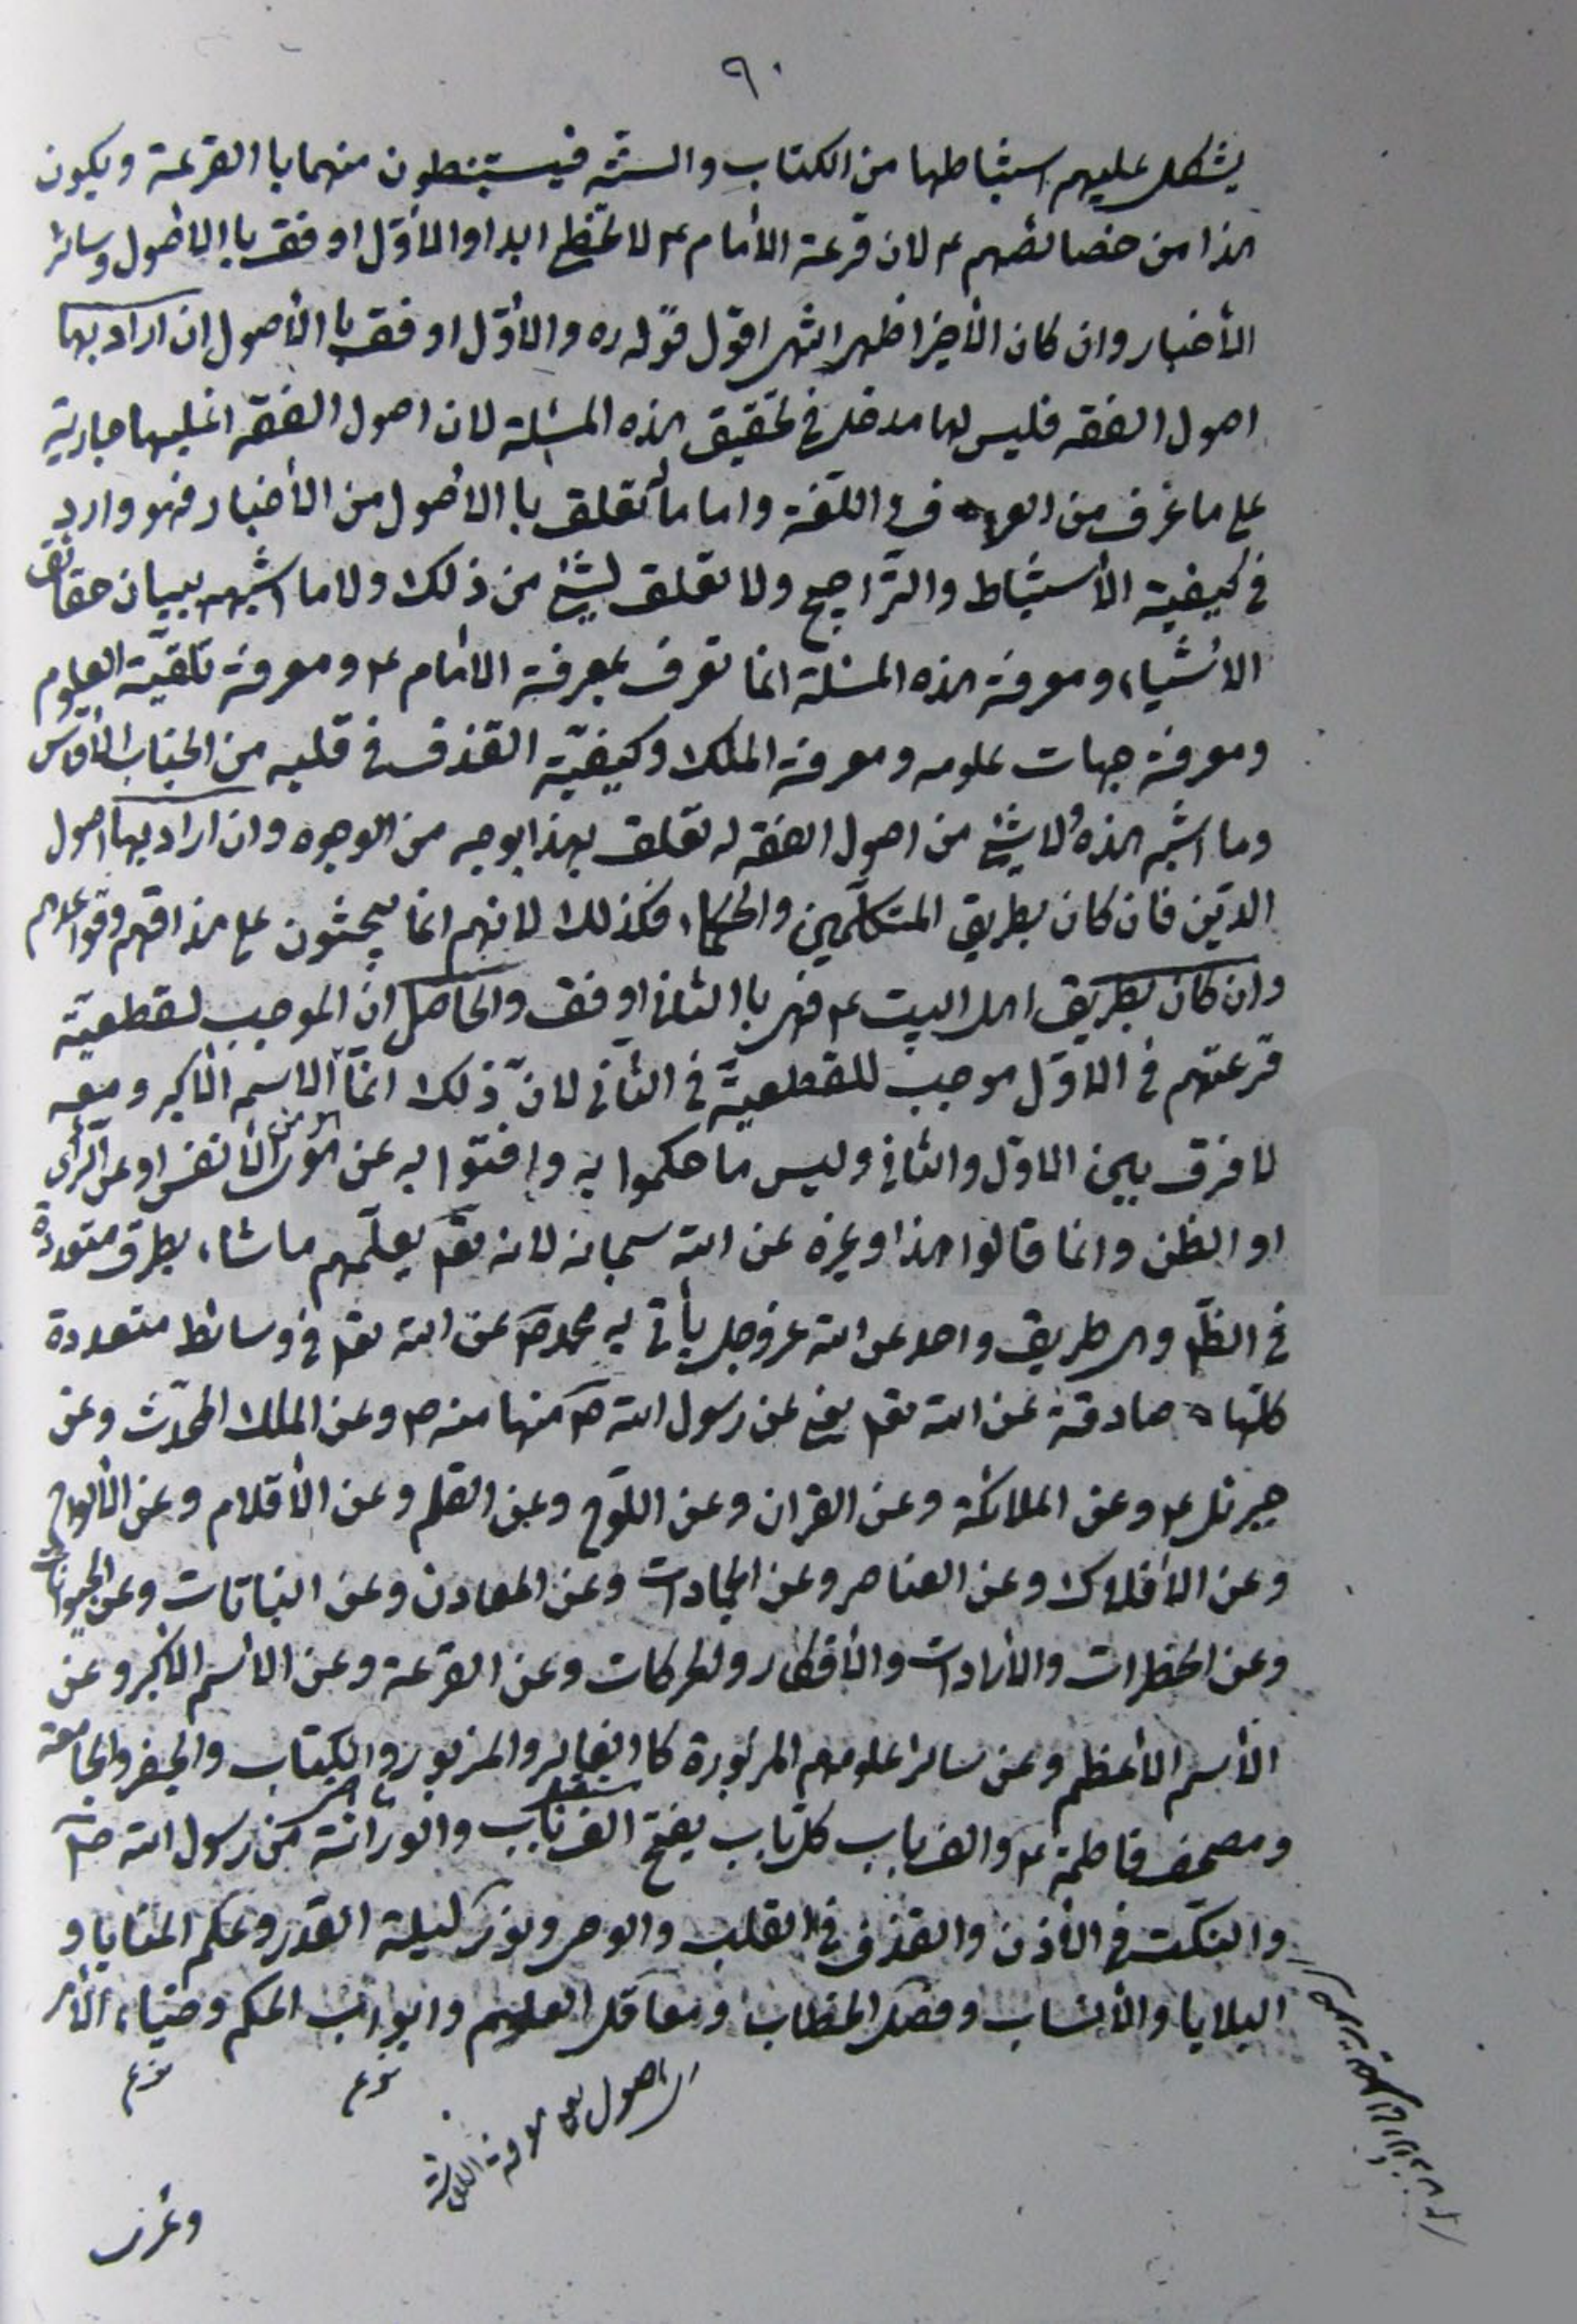 ٩٠
يشكل عليهم استنباطها من الكتاب والسنة فيستنبطون منهما با القرعة ويكون
هذا من خصائصهم ع لان قرعة الأمام ع لا تخطئ ابدا والأوّل اوفق با الأصول وسائر
الأخبار وان كان الأخير اظهر انتهى اقول قوله ره والأوّل اوفق با الأصول ان اراد بها
اصول الفقه فليس لها مدخل في تحقيق هذه المسئلة لان اصول الفقه اغلبها جارية
على ما عرف من العرف واللّغة واما ما تعلق با الأصول من الأخبار فهو وارد
في كيفية الأستنباط والتّراجيح ولا تعلق لشئ من ذلك ولا ما اشبهه ببيان حقائق
الأشياء ومعرفة هذه المسئلة انما تعرف بمعرفة الأمام ع ومعرفة تلقيه العلوم
ومعرفة جهات علومه ومعرفة الملك وكيفيّة القذف في قلبه من الجناب الأقدس
وما اشبه هذه ولا شئ من اصول الفقه له تعلق بهذا بوجه من الوجوه وان اراد بها اصول
الدّين فان كان بطريق المتكلّمين والحكماء فكذلك لانهم انما يبحثون على مذاقهم وقواعدهم
وان كان بطريق اهل البيت ع فهى با الثانى اوفق والحاصل انّ الموجب لقطعيّة
قرعتهم في الأوّل موجب للقطعيّة في الثاني لانّ ذلك انمّا الاسم الأكبر ومعه
لا فرق بين الاوّل والثاني وليس ما حكموا به وافتوا به عن هوى من الأنفس او عن الرّأى
او الظن وانما قالوا هذا وغيره عن الله سبحانه لانه تعم يعلّمهم ما شاء بطرق متعددة
في الظّ وهى طريق واحد عن الله عز وجل يأتى به محمد ص عن الله تعم في وسائط متعددة
كلّها صادقة عن الله تعم يعنى عن رسول الله ص منها منه ص وعن الملك المحدّث وعن
جبرئل ع وعن الملائكة وعن القران وعن اللّوح وعن القلم وعن الأقلام وعن الألواح
وعن الأفلاك وعن العناصر وعن الجمادات وعن المعادن وعن النباتات وعن الحيوانات
وعن الخطرات والأرادات والأفكار والحركات وعن القرعة وعن الأسم الأكبر وعن
الأسم الأعظم وعن سائر علومهم المزبورة كا الغابر والمزبور والكتاب والجفر والجامعة
ومصحف فاطمة ع والف باب كل باب يفتح الف باب والوراثة من رسول الله ص
والنكت في الأذن والقذف في القلب والوحى ونور ليلة القدر وعلم المنايا و
البلايا والأنساب وفصل الخطاب ومعاقل العلم وابواب الحكم وضياء الأمر
وعرف